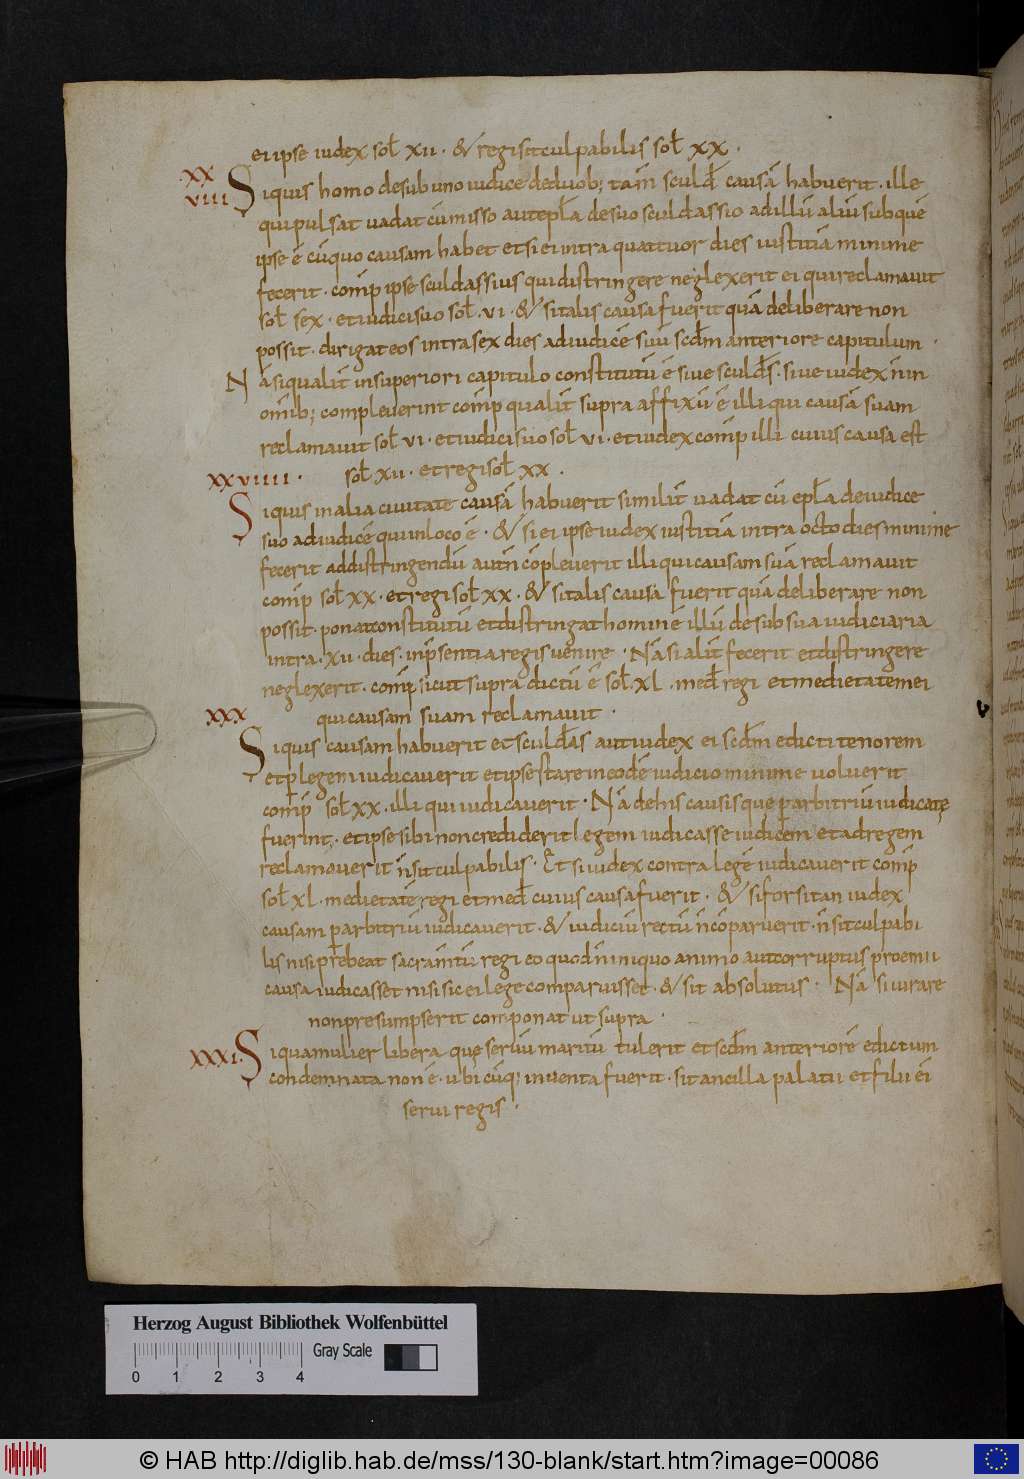 ei ipse iudex sol̄ xii · & regi sit culpabilis sol̄ xx ·
xx
viii
Siquis homo de sub uno iudice de duob; tam̄ sculd̄ causā habuerit · ille
qui pulsat uadat cū misso aut epl̄a de suo sculdassio ad illū aliū sub quē
ipse ē cū quo causam habet et si ei intra quattuor dies iustitiā minime
fecerit · comp̄ ipse sculdassius qui distringere neglexerit ei qui reclamauit
sol̄ sex · et iudici suo sol̄ · vi · & si talis causa fuerit quā deliberare non
possit · dirigat eos intra sex dies ad iudicē suū scd̄m anteriore capitulum ·
Nā si qualit̄ in superiori capitulo constitutū ē siue sculd̄s · siue iudex n̄ in
omib; compleuerint comp̄ qualit̄ supra affixū ē illi qui causā suam
reclamauit sol̄ vi · et iudici suo sol̄ vi · et iudex comp̄ illi cuius causa est
sol̄ xii · et regi sol̄ xx ·
xxviiii ·
Siquis in alia ciuitate causā habuerit similit̄ uadat cū epl̄a de iudice
suo ad iudicē qui in loco ē · & si ei ipse iudex iustitiā intra octo dies minime
fecerit ad distringendū aut n̄ cōpleuerit illi qui causam suā reclamauit
comp̄ sol̄ xx · et regi sol̄ xx · & si talis causa fuerit quā deliberare non
possit · ponat constitutū et distringat hominē illū de sub sua iudiciaria
intra · xii · dies · in p̄sentia regis uenire · Nā si alit̄ fecerit et distringere
neglexerit · comp̄ sicut supra dictū ē sol̄ xl · med̄ regi et medietatem ei
qui causam suam reclamauit ·
xxx
Siquis causam habuerit et sculd̄as aut iudex ei scd̄m edicti tenorem
et p̱ legem iudicauerit et ipse stare in eodē iudicio minime uoluerit
comp̄ sol̄ xx · illi qui iudicauerit · Nā de his causis que p̱ arbitriū iudicatę
fuerint · et ipse sibi non crediderit legem iudicasse iudicem et ad regem
reclamouerit n̄ sit culpabilis · Et si iudex contra legē iudicauerit comp̄
sol̄ xl · medietatē regi et med̄ cuius causa fuerit · & si forsitan iudex
causam p̱ arbitriū iudicauerit · & iudiciū rectū n̄ cōparuerit · n̄ sit culpabi
lis nisi prebeat sacram̄tū regi eo quod n̄ iniquo animo aut corruptus proemii
causa iudicasset nisi sic ei lege comparuisset · & sit absolutus · Nā si iurare
non presumpserit componat ut supra ·
xxxi ·
Siqua mulier libera que seruū maritū tulerit et scd̄m anteriorē edictum
condemnata non ē · ubi cūq; inuenta fuerit · sit ancilla palatii et filii ei
serui regis ·
Herzog August Bibliothek Wolfenbüttel
Gray Scale
0 1 2 3 4
© HAB http://diglib.hab.de/mss/130-blank/start.htm?image=00086